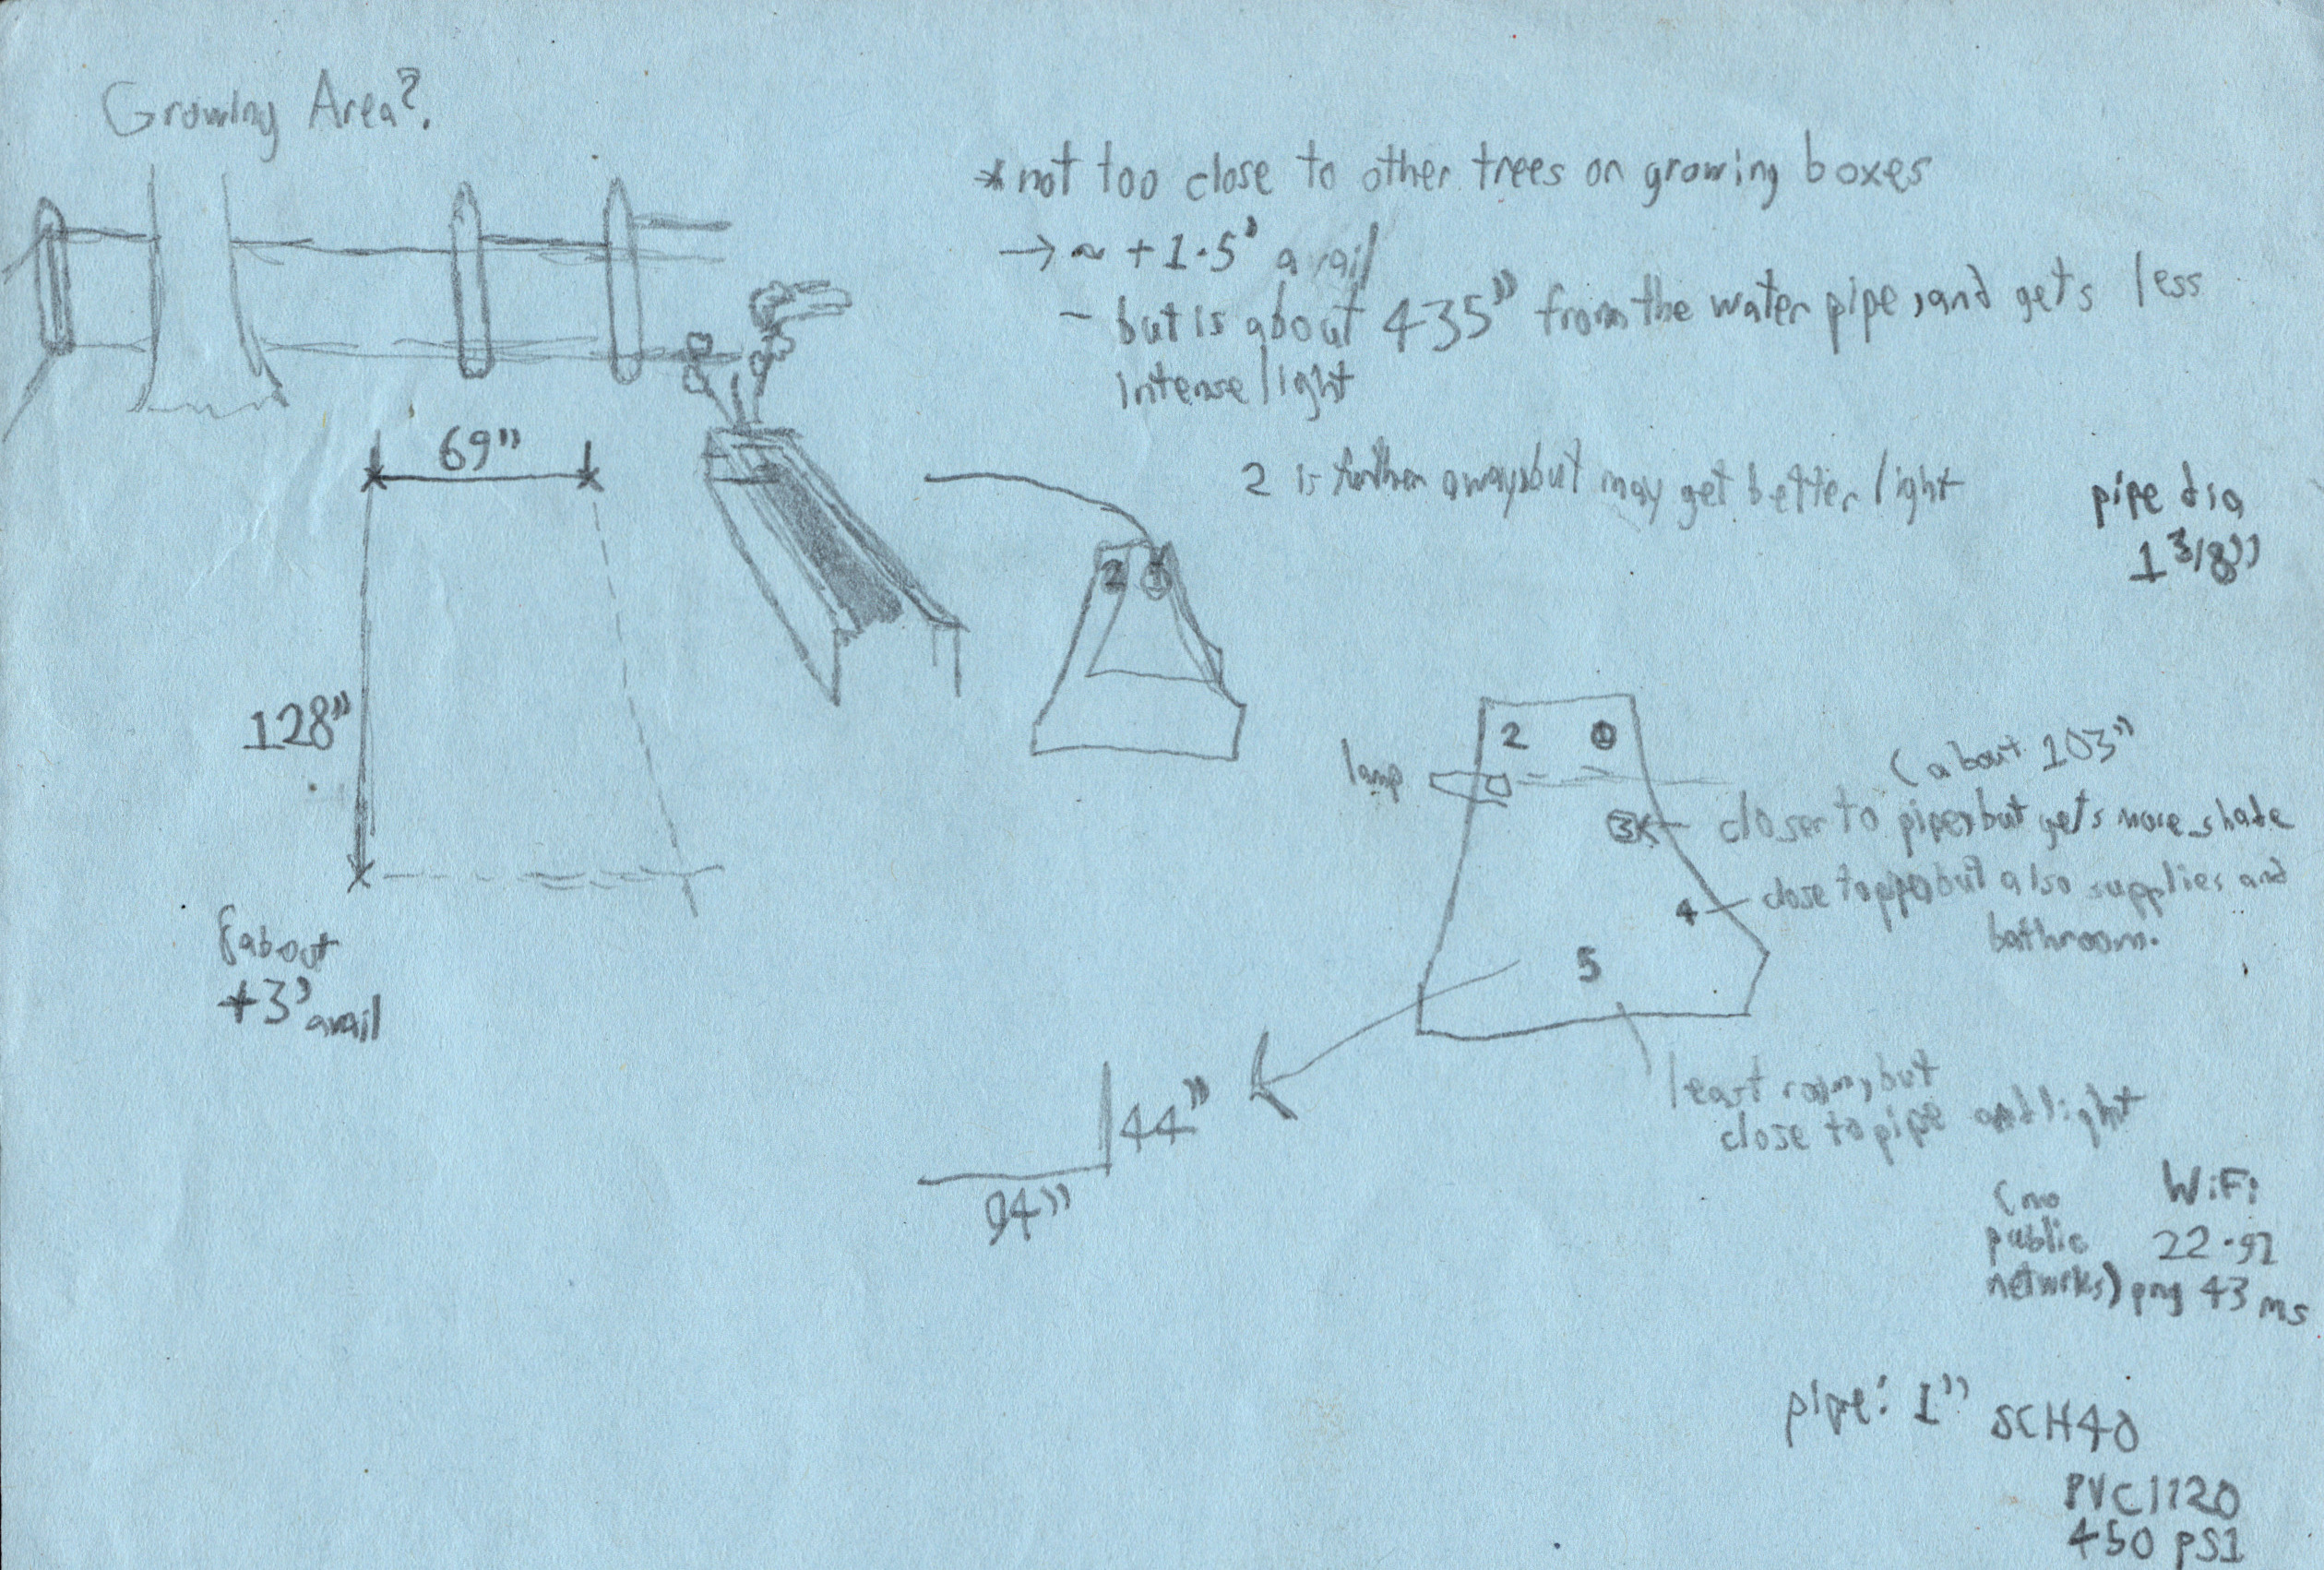 Growing Area?.
*not too close to other trees or growing boxes
→ ~ +1.5' avail
- but is about 435" from the water pipe, and gets less
intense light
69"
2 is further away, but may get better light
pipe dia
1 3/8"
2 1
128"
2 1
lamp
(about 103"
3 closer to pipe, but gets more shade
4 close to pipe, but also supplies and
bathroom.
5
about
+3' avail
44"
94"
least room, but
close to pipe and light
(no
public
netwrks)
WiFi
22.91
png 43 ms
pipe: 1" SCH40
PVC1120
450 PSI